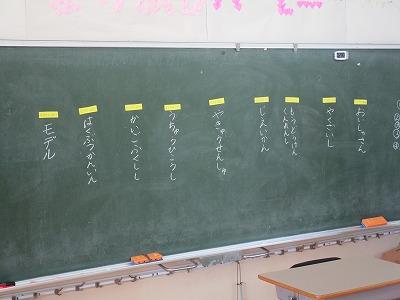 おいしゃさん
やくざいし
もうどうけん
くんれんし
じえいかん
やきゅうせんしゅ
うちゅうひこうし
かいごふくしし
はくぶつかんいん
モデル